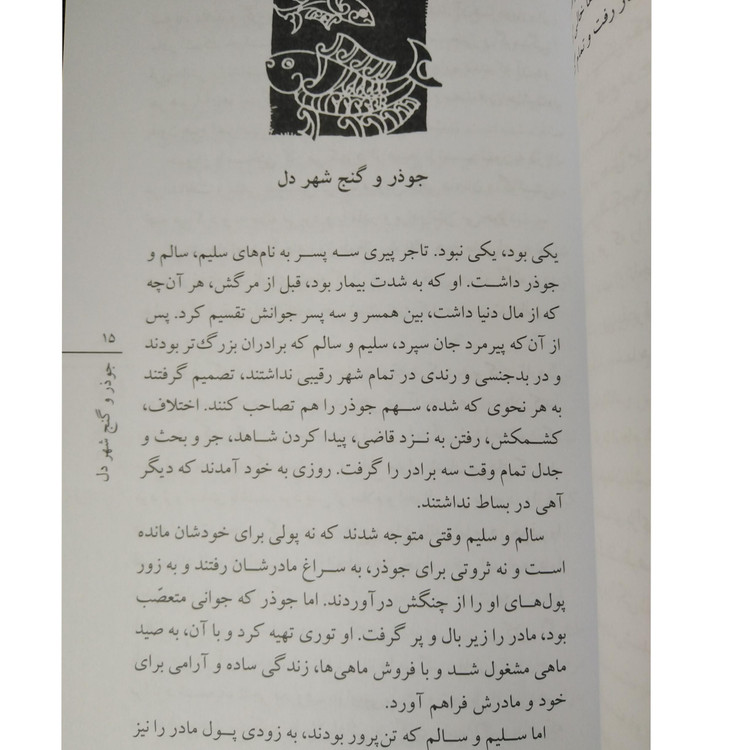 جوذر و گنج شهر دل
یکی بود، یکی نبود. تاجر پیری سه پسر به نام‌های سلیم، سالم و
جوذر داشت. او که به شدت بیمار بود، قبل از مرگش، هر آن‌چه
که از مال دنیا داشت، بین همسر و سه پسر جوانش تقسیم کرد. پس
از آن‌که پیرمرد جان سپرد، سلیم و سالم که برادران بزرگ‌تر بودند
و در بدجنسی و رندی در تمام شهر رقیبی نداشتند، تصمیم گرفتند
به هر نحوی که شده، سهم جوذر را هم تصاحب کنند. اختلاف،
کشمکش، رفتن به نزد قاضی، پیدا کردن شاهد، جر و بحث و
جدل تمام وقت سه برادر را گرفت. روزی به خود آمدند که دیگر
آهی در بساط نداشتند.
سالم و سلیم وقتی متوجه شدند که نه پولی برای خودشان مانده
است و نه ثروتی برای جوذر، به سراغ مادرشان رفتند و به زور
پول‌های او را از چنگش درآوردند. اما جوذر که جوانی متعصّب
بود، مادر را زیر بال و پر گرفت. او توری تهیه کرد و با آن، به صید
ماهی مشغول شد و با فروش ماهی‌ها، زندگی ساده و آرامی برای
خود و مادرش فراهم آورد.
اما سلیم و سالم که تن‌پرور بودند، به زودی پول مادر را نیز
۱۵
جوذر و گنج شهر دل
رفت و